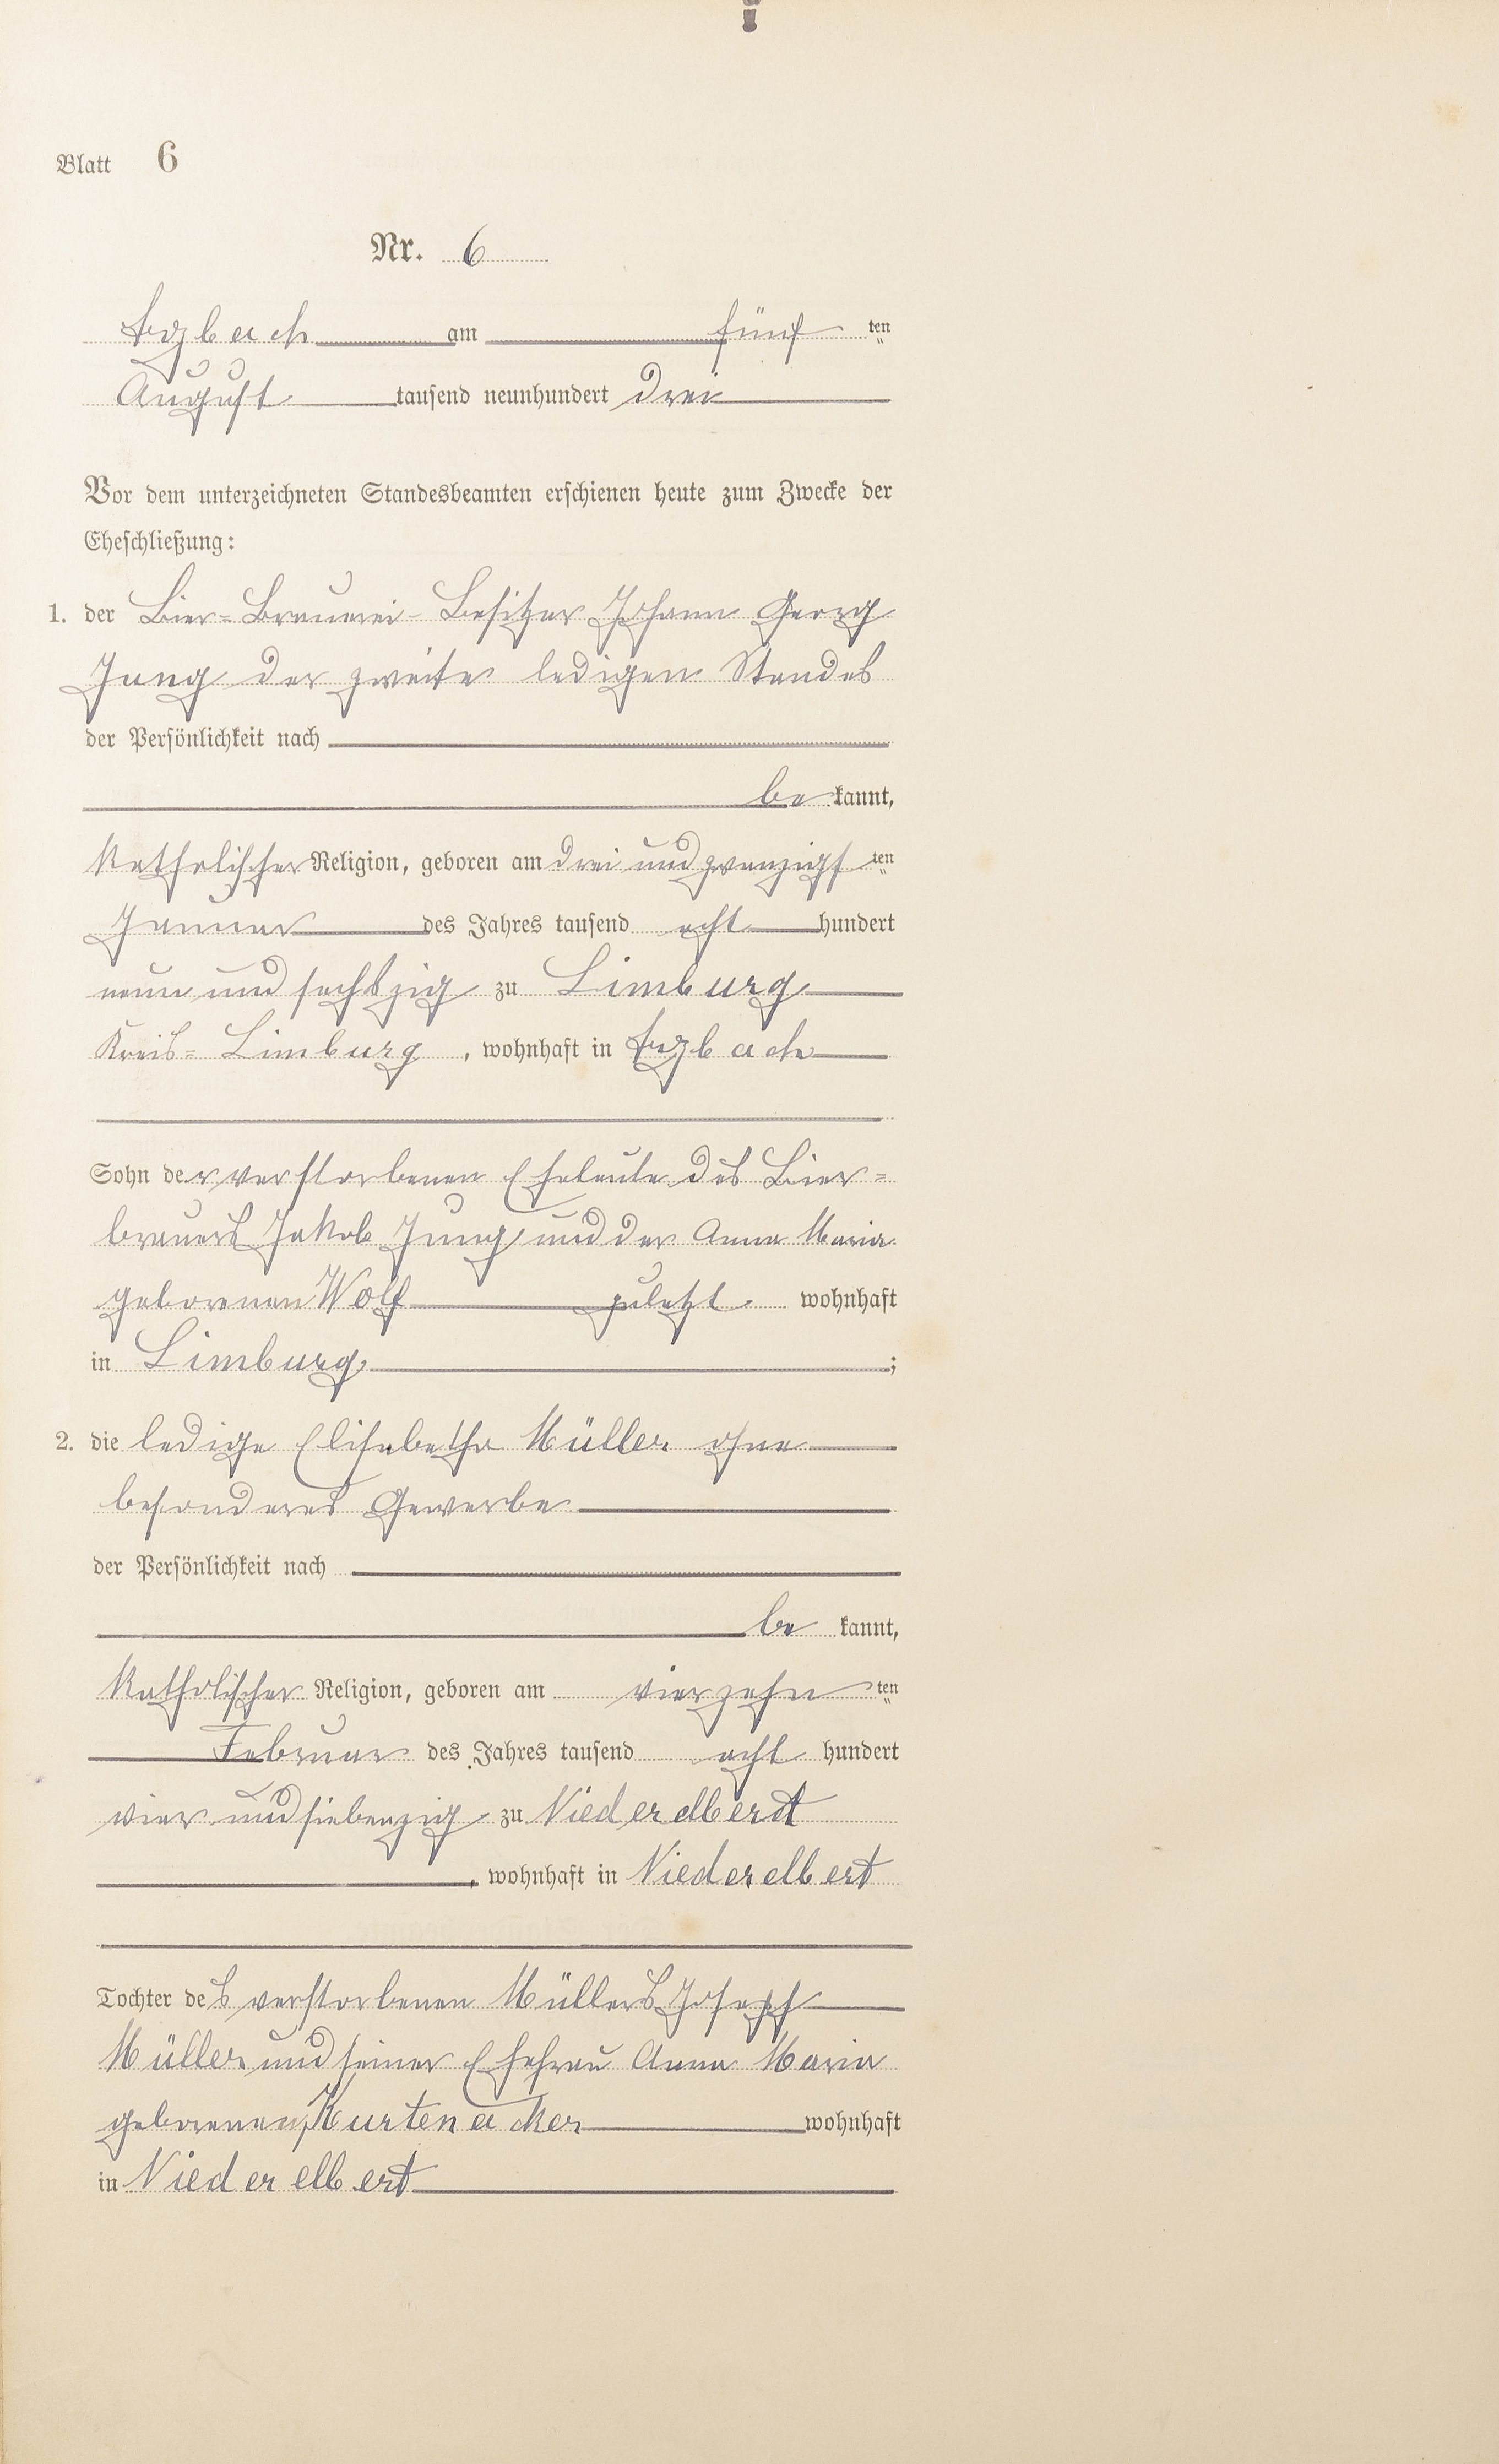 Blatt 6
Nr. 6
Arzbach am fünf ten
August tausend neunhundert drei
Vor dem unterzeichneten Standesbeamten erschienen heute zum Zwecke der
Eheschließung:
1. der Bier=Brauerei-Besitzer Johann Georg
Jung der zweite ledigen Standes
der Persönlichkeit nach
be kannt,
Katholischer Religion, geboren am drei und zwanzigs ten
Januar des Jahres tausend acht hundert
neun und sechszig zu Limburg
Kreis=Limburg, wohnhaft in Arzbach
Sohn der verstorbenen Eheleute des Bier=
brauers Jakob Jung und der Anna Maria
geborenen Wolf zuletzt wohnhaft
in Limburg;
2. die ledige Elisabetha Müller ohne
besonderes Gewerbe
der Persönlichkeit nach
be kannt,
Katholischer Religion, geboren am vierzehn ten
Februar des Jahres tausend acht hundert
vier und siebenzig zu Niederelbert
, wohnhaft in Niederelbert
Tochter des verstorbenen Müllers Joseph
Müller und seiner Ehefrau Anna Maria
geborenen Kurtenacker wohnhaft
in Niederelbert